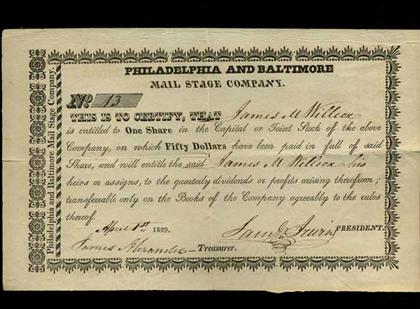 PHILADELPHIA AND BALTIMORE
MAIL STAGE COMPANY.
No. 13
THIS IS TO CERTIFY, THAT James M Willcox
is entitled to One Share in the Capital or Joint Stock of the above
Company, on which Fifty Dollars have been paid in full of said
Share, and will entitle the said James M Willcox his
heirs or assigns, to the quarterly dividends or profits arising therefrom;
transferable only on the Books of the Company agreeably to the rules
thereof.
April 1st 1829.
Saml Irwin PRESIDENT.
James Alexander Treasurer.
Philadelphia and Baltimore Mail Stage Company.